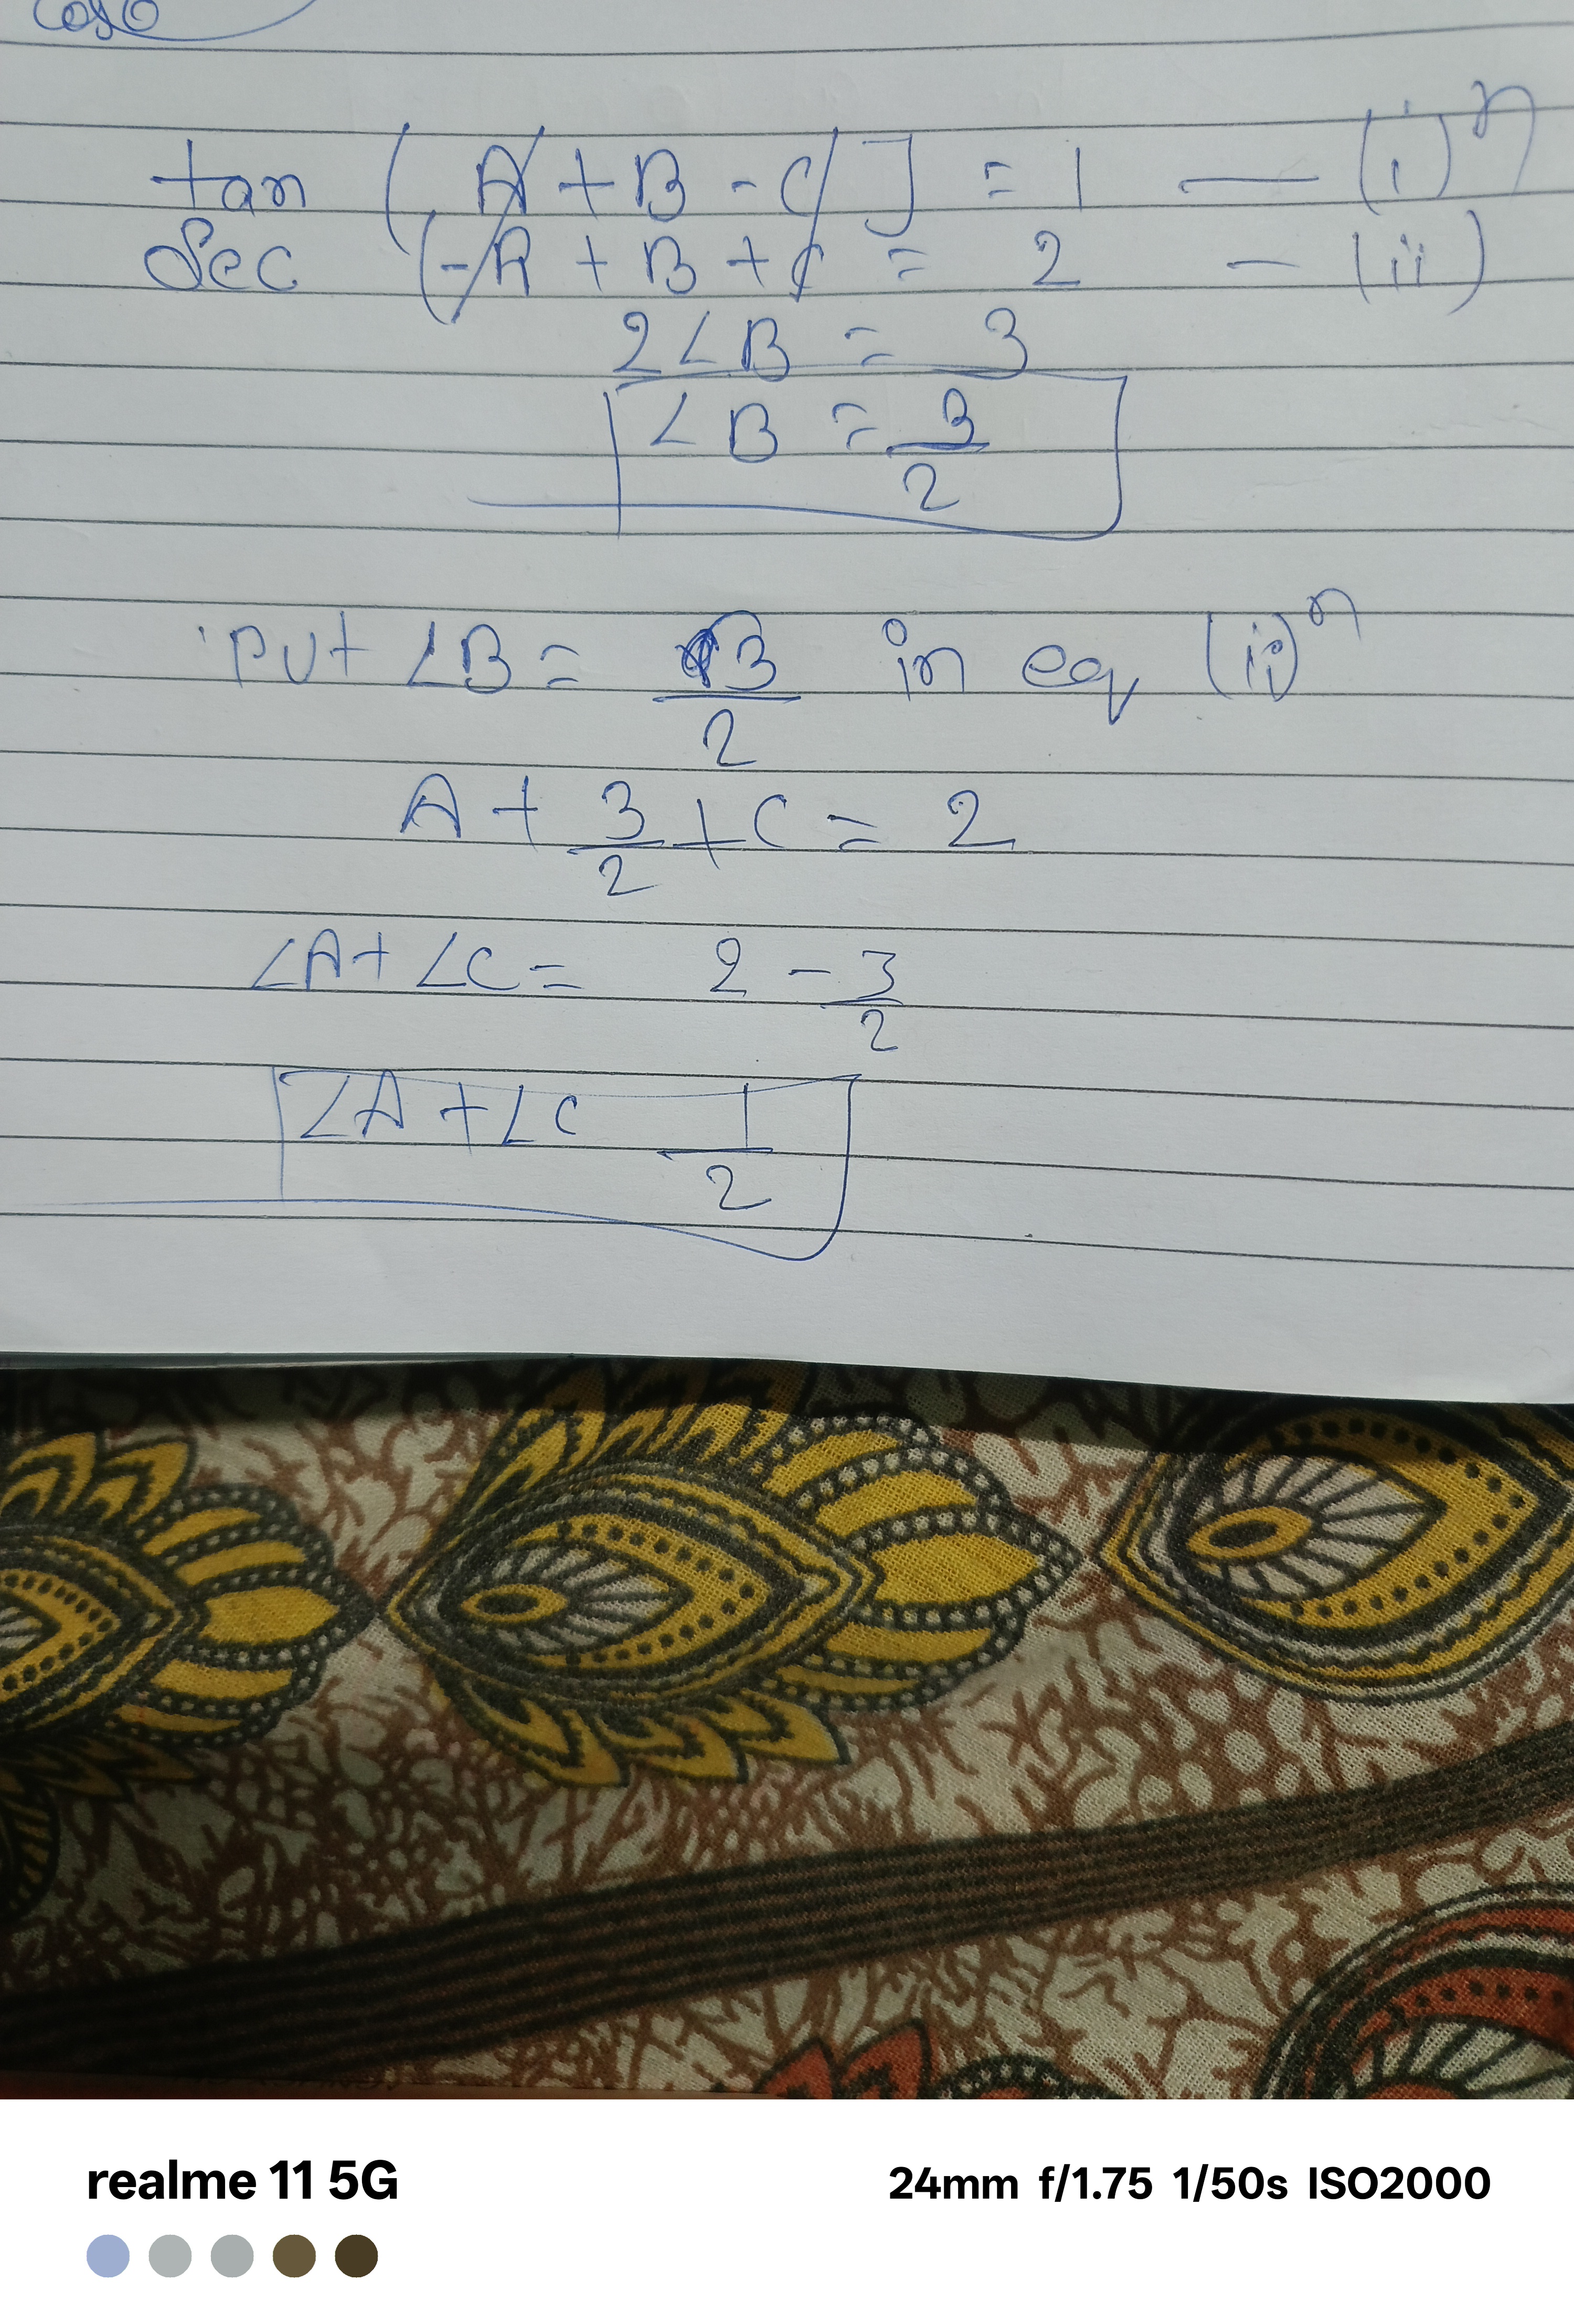 cosθ
tan (A + B - C] = 1 — (i)ⁿ
Sec (-A + B + C = 2 — (ii)
2∠B = 3
∠B = 3/2
Put ∠B = 3/2 in eq (ii)ⁿ
A + 3/2 + C = 2
∠A + ∠C = 2 - 3/2
∠A + ∠C 1/2
realme 11 5G
24mm f/1.75 1/50s ISO2000